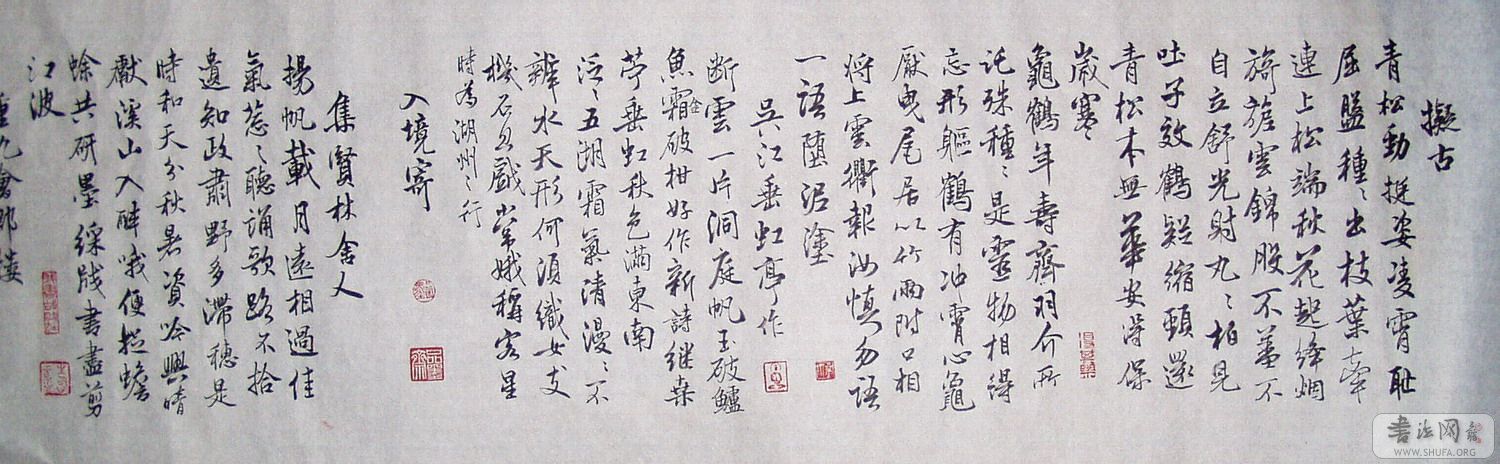 擬古
青松勁挺姿凌霄耻
屈盤種々出枝葉牽
連上松端秋花起絳烟
旖旎雲錦殷不羞不
自立舒光射丸々柏見
吐子效鶴疑縮頸還
青松本無華安得保
歲寒
龜鶴年壽齊羽介所
託殊種々是靈物相得
忘形軀鶴有冲霄心龜
厭曳尾居以竹兩附口相
将上雲衢報汝慎勿語
一語墮泥塗
吳江垂虹亭作
断雲一片洞庭帆玉破鱸
魚霜金破柑好作新詩继桑
苧垂虹秋色滿東南
泛々五湖霜氣清漫々不
辨水天形何須織女支
機石且戲常娥稱客星
時為湖州之行
入境寄
集賢林舍人
揚帆載月遠相過佳
氣蔥々聽誦歌路不拾
遺知政肅野多滯穗是
時和天分秋暑資吟興晴
獻溪山入醉哦便捉蟾
蜍共研墨綵牋書盡剪
江波
重九會郡樓
書法网
WWW.SHUFA.ORG